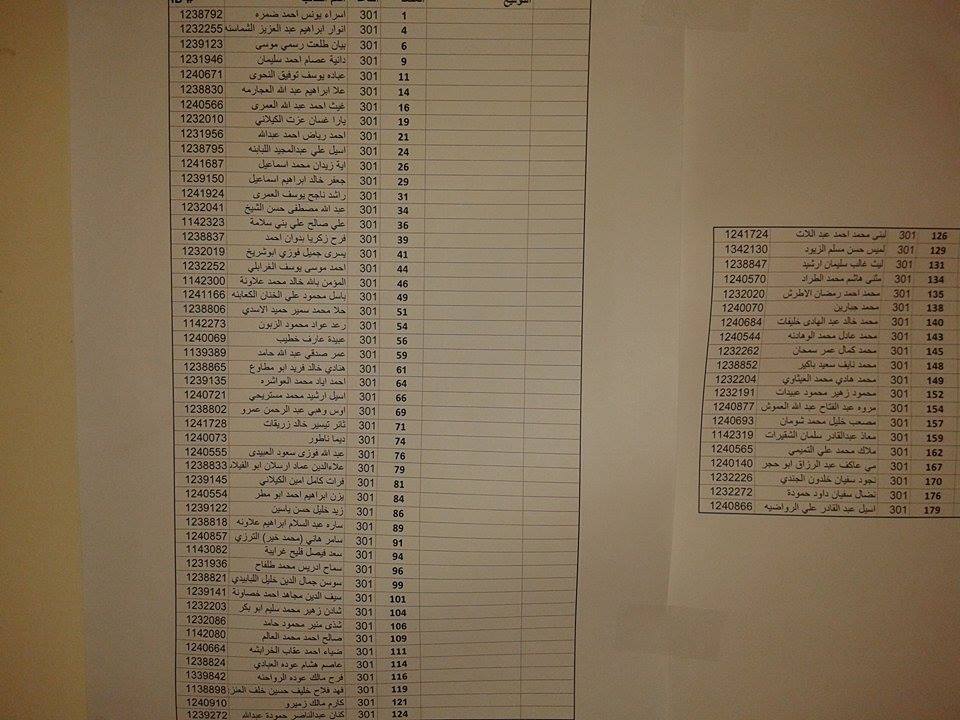 التوقيع ID #
1 301 اسراء يونس احمد ضمره 1238792
4 301 انوار ابراهيم عبد العزيز الشماسنه 1232255
6 301 بيان طلعت رسمي موسى 1239123
9 301 دانية عصام احمد سليمان 1231946
11 301 عباده يوسف توفيق النحوى 1240671
14 301 علا ابراهيم عبد الله العجارمه 1238830
16 301 غيث احمد عبد الله العمرى 1240566
19 301 يارا غسان عزت الكيلاني 1232010
21 301 احمد رياض احمد عبدالله 1231956
24 301 اسيل علي عبدالمجيد اللبابنه 1238795
26 301 اية زيدان محمد اسماعيل 1241687
29 301 جعفر خالد ابراهيم اسماعيل 1239150
31 301 راشد ناجح يوسف العمرى 1241924
34 301 عبد الله مصطفى حسن الشيخ 1232041
36 301 علي صالح علي بني سلامة 1142323
39 301 فرح زكريا بدوان احمد 1238837
41 301 يسرى جميل فوزي ابوشريخ 1232019
44 301 احمد موسى يوسف الغرابلي 1232252
46 301 المؤمن بالله خالد محمد علاونة 1142300
49 301 باسل محمود علي الختان الكعابنه 1241166
51 301 حلا محمد سمير حميد الاسدي 1238806
54 301 رعد عواد محمود الزبون 1142273
56 301 عبيدة عارف خطيب 1240069
59 301 عمر صدقي عبد الله حامد 1139389
61 301 هنادي خالد فريد ابو مطاوع 1238865
64 301 احمد اياد محمد العواشره 1239135
66 301 اسيل ارشيد محمد مستريحي 1240721
69 301 اوس وهبي عبد الرحمن عمرو 1238802
71 301 ثائر تيسير خالد زريقات 1241728
74 301 ديما ناطور 1240073
76 301 عبد الله فوزى سعود العبيدى 1240555
79 301 علاءالدين عماد ارسلان ابو الفيلات 1238833
81 301 فرات كامل امين الكيلاني 1239145
84 301 يزن ابراهيم احمد ابو مطر 1240554
86 301 زيد خليل حسن ياسين 1239122
89 301 ساره عبد السلام ابراهيم علاونه 1238818
91 301 سامر هاني (محمد خير) الترزي 1240857
94 301 سعد فيصل فليح غرايبة 1143082
96 301 سماح ادريس محمد طلفاح 1231936
99 301 سوسن جمال الدين خليل اللبابيدي 1238821
101 301 سيف الدين مجاهد احمد خصاونة 1239141
104 301 شادن زهير محمد سليم ابو بكر 1232203
106 301 شذى منير محمود حامد 1232086
109 301 صالح احمد محمد العالم 1142080
111 301 ضياء احمد عقاب الخرابشه 1240664
114 301 عاصم هشام عوده العبادي 1238824
116 301 فرح مالك عوده الرواحنه 1339842
119 301 فهد فلاح خليف حسين خلف العنزي 1138898
121 301 كارم مالك زميرو 1240910
124 301 كنان عبدالناصر حمودة عبدالله 1239272
126 301 لبنى محمد احمد عبد اللات 1241724
129 301 لميس حسن مسلم الزيود 1342130
131 301 ليث غالب سليمان ارشيد 1238847
134 301 مثنى هاشم محمد الطراد 1240570
135 301 محمد احمد رمضان الاطرش 1232020
138 301 محمد جبارين 1240070
140 301 محمد خالد عبد الهادى خليفات 1240684
143 301 محمد عادل محمد الوهادنه 1240544
145 301 محمد كمال عمر سمحان 1232262
148 301 محمد نايف سعيد باكير 1238852
149 301 محمد هادي محمد العيثاوي 1232204
152 301 محمود زهير محمود عبيدات 1232191
154 301 مروه عبد الفتاح عبد الله العموش 1240877
157 301 مصعب خليل محمد شومان 1240693
159 301 معاذ عبدالقادر سلمان الشقيرات 1142319
162 301 ملاك محمد علي التميمي 1240565
167 301 مي عاكف عبد الرزاق ابو حجر 1240140
170 301 نجود سفيان خلدون الجندي 1232226
176 301 نضال سفيان داود حمودة 1232272
179 301 اسيل عبد القادر علي الرواضيه 1240866